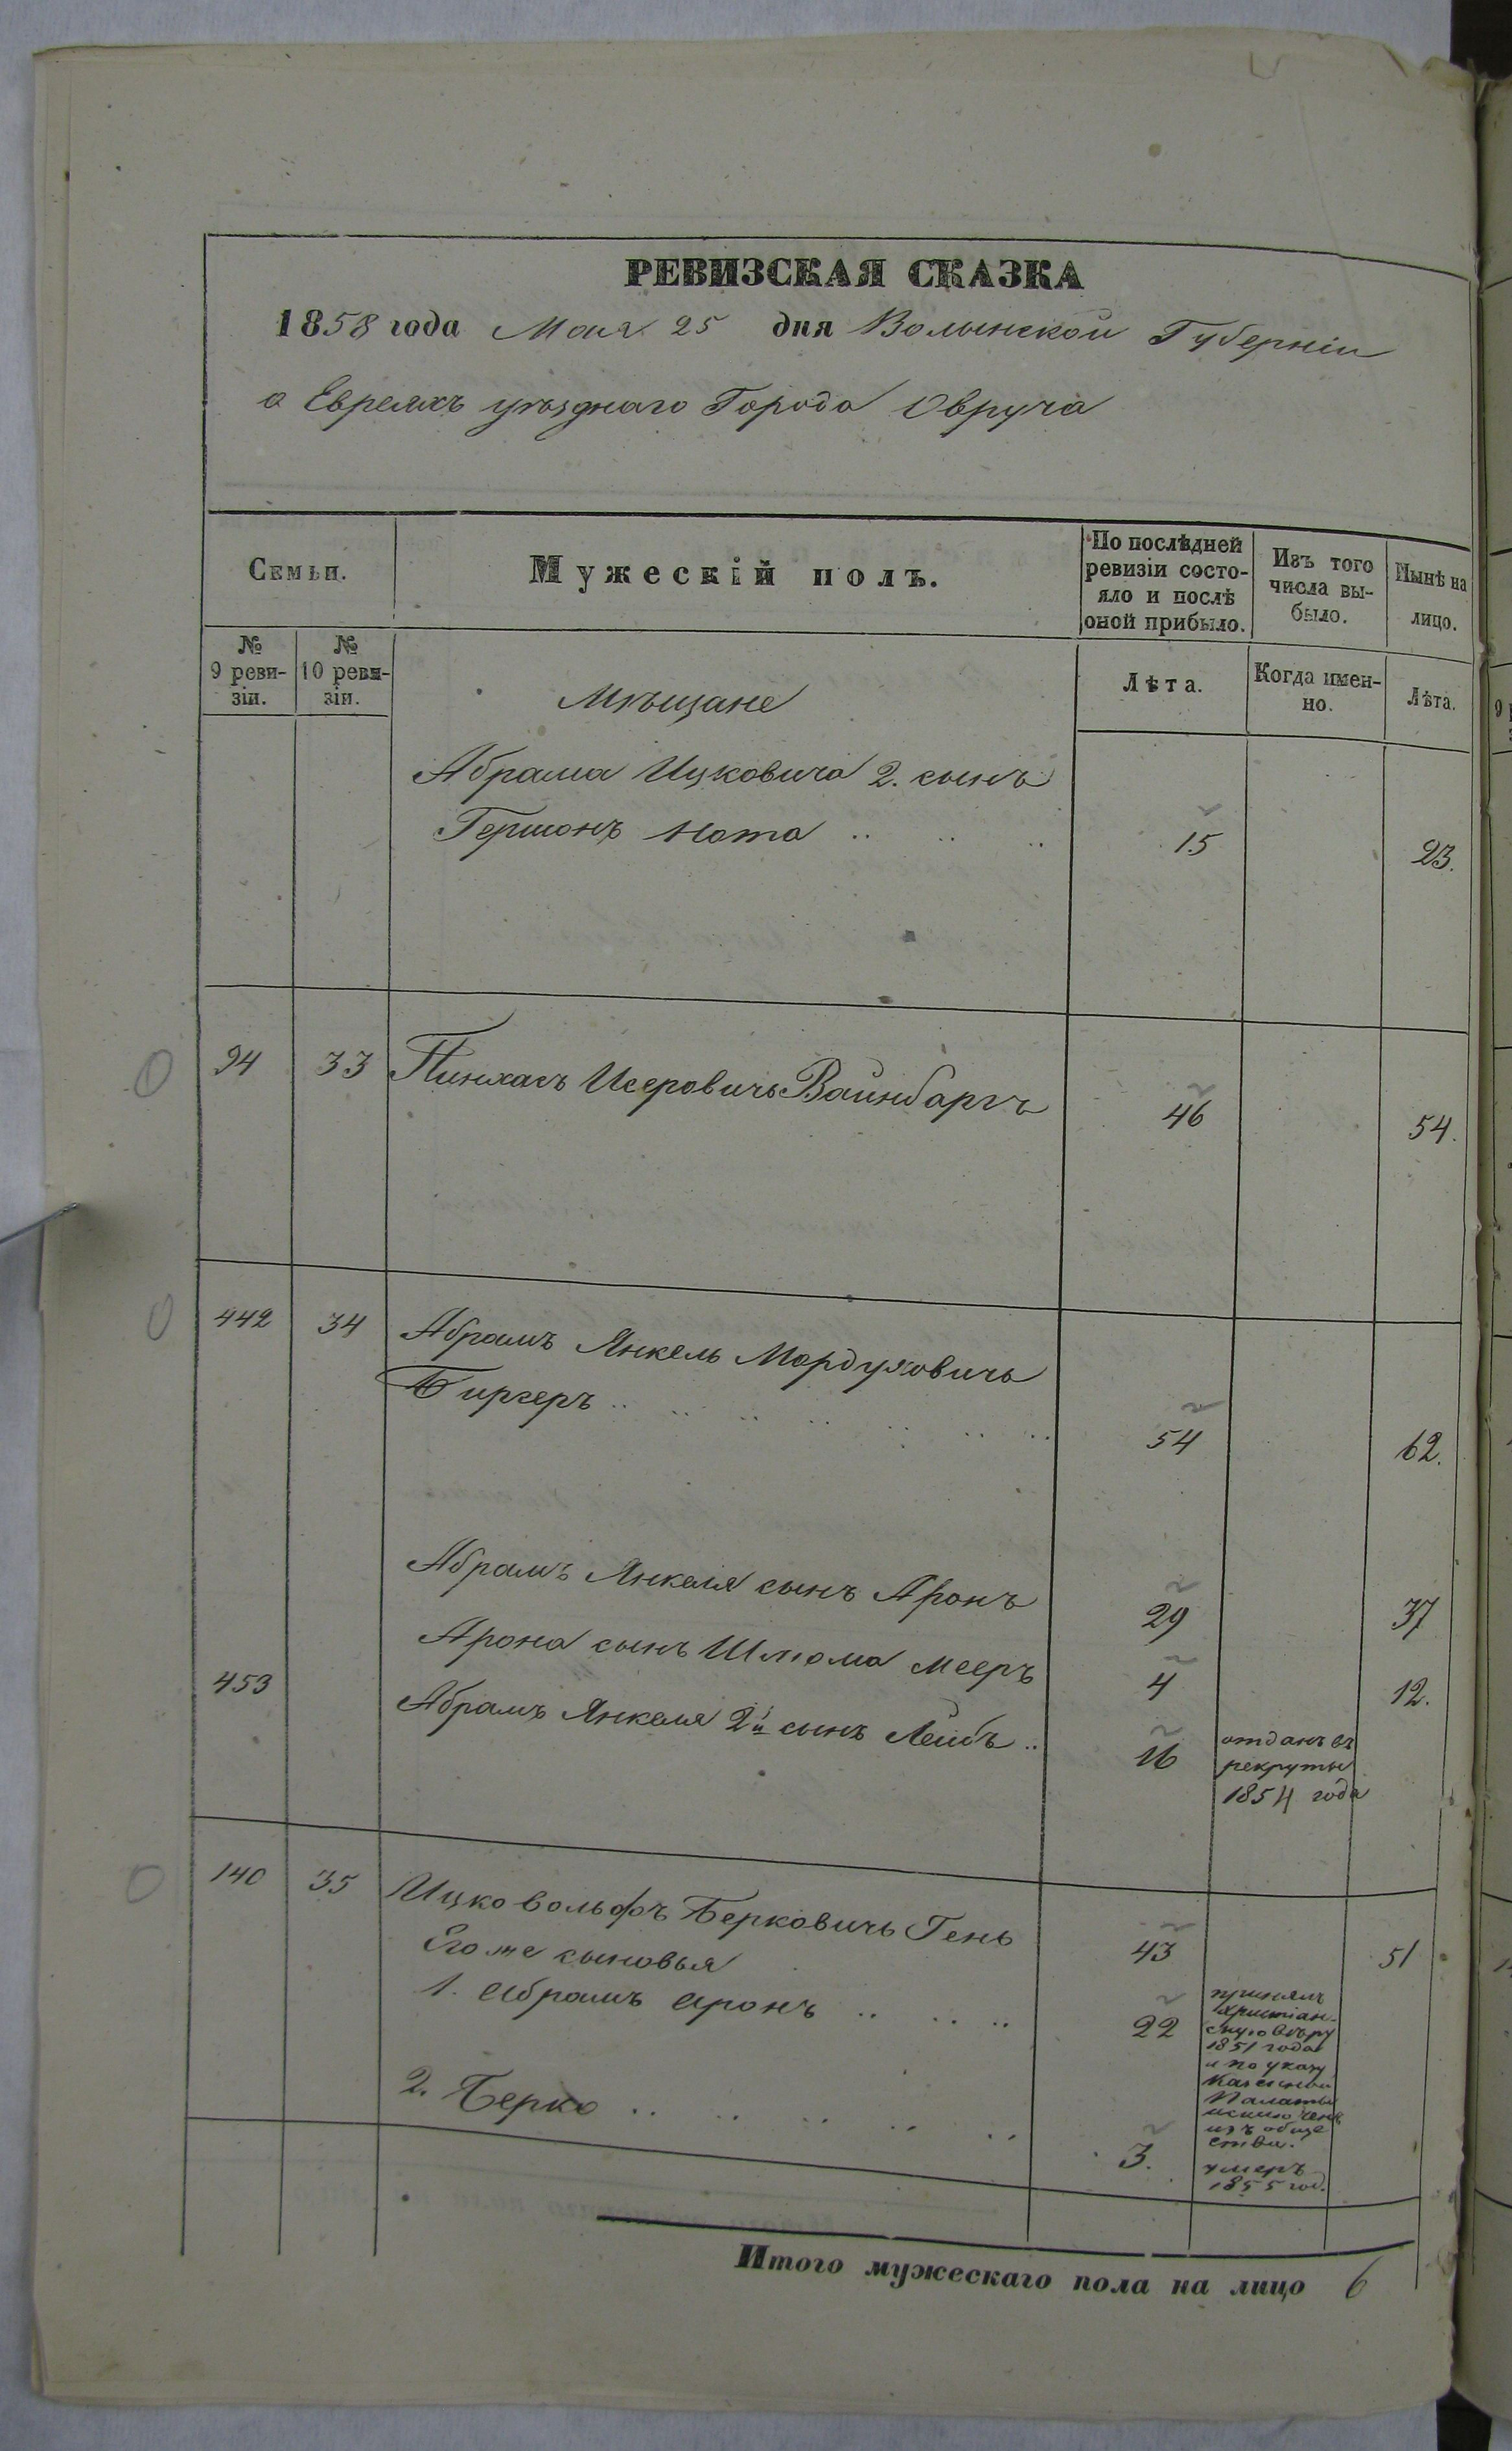 РЕВИЗСКАЯ СКАЗКА
1858 года Мая 25 дня Волынской Губерніи
о Евреяхъ уѣзднаго Города Овруча
Семьи.
Мужескій полъ.
По послѣдней
ревизіи состо-
яло и послѣ
оной прибыло.
Изъ того
числа вы-
было.
Нынѣ на
лицо.
№
9 реви-
зіи.
№
10 реви-
зіи.
Лѣта.
Когда имен-
но.
Лѣта.
Мѣщане
Абрама Ицковича 2. сынъ
Гершонъ Ната .. .. .. 15 23.
94 33 Пинхасъ Исеровичь Вайнбаргъ 46 54.
442 34 Абрамъ Янкель Мордуховичь
Биргеръ .. .. .. .. .. .. .. 54 62.
Абрамъ Янкеля сынъ Аронъ 29 37
Арона сынъ Шлома Мееръ 4 12.
453 Абрамъ Янкеля 2й сынъ Лейбъ .. 16
отданъ въ
рекруты
1854 года
140 35 Ицко Вольфъ Берковичь Гень 43 51
Его же сыновья
1. Абрамъ Аронъ .. .. .. 22
принялъ
христіан-
скую вѣру
1851 года
и по указу
Казенной
Палаты
исключенъ
изъ обще
ства.
2. Берко .. .. .. .. .. 3.
умеръ
1855 год.
Итого мужескаго пола на лицо 6